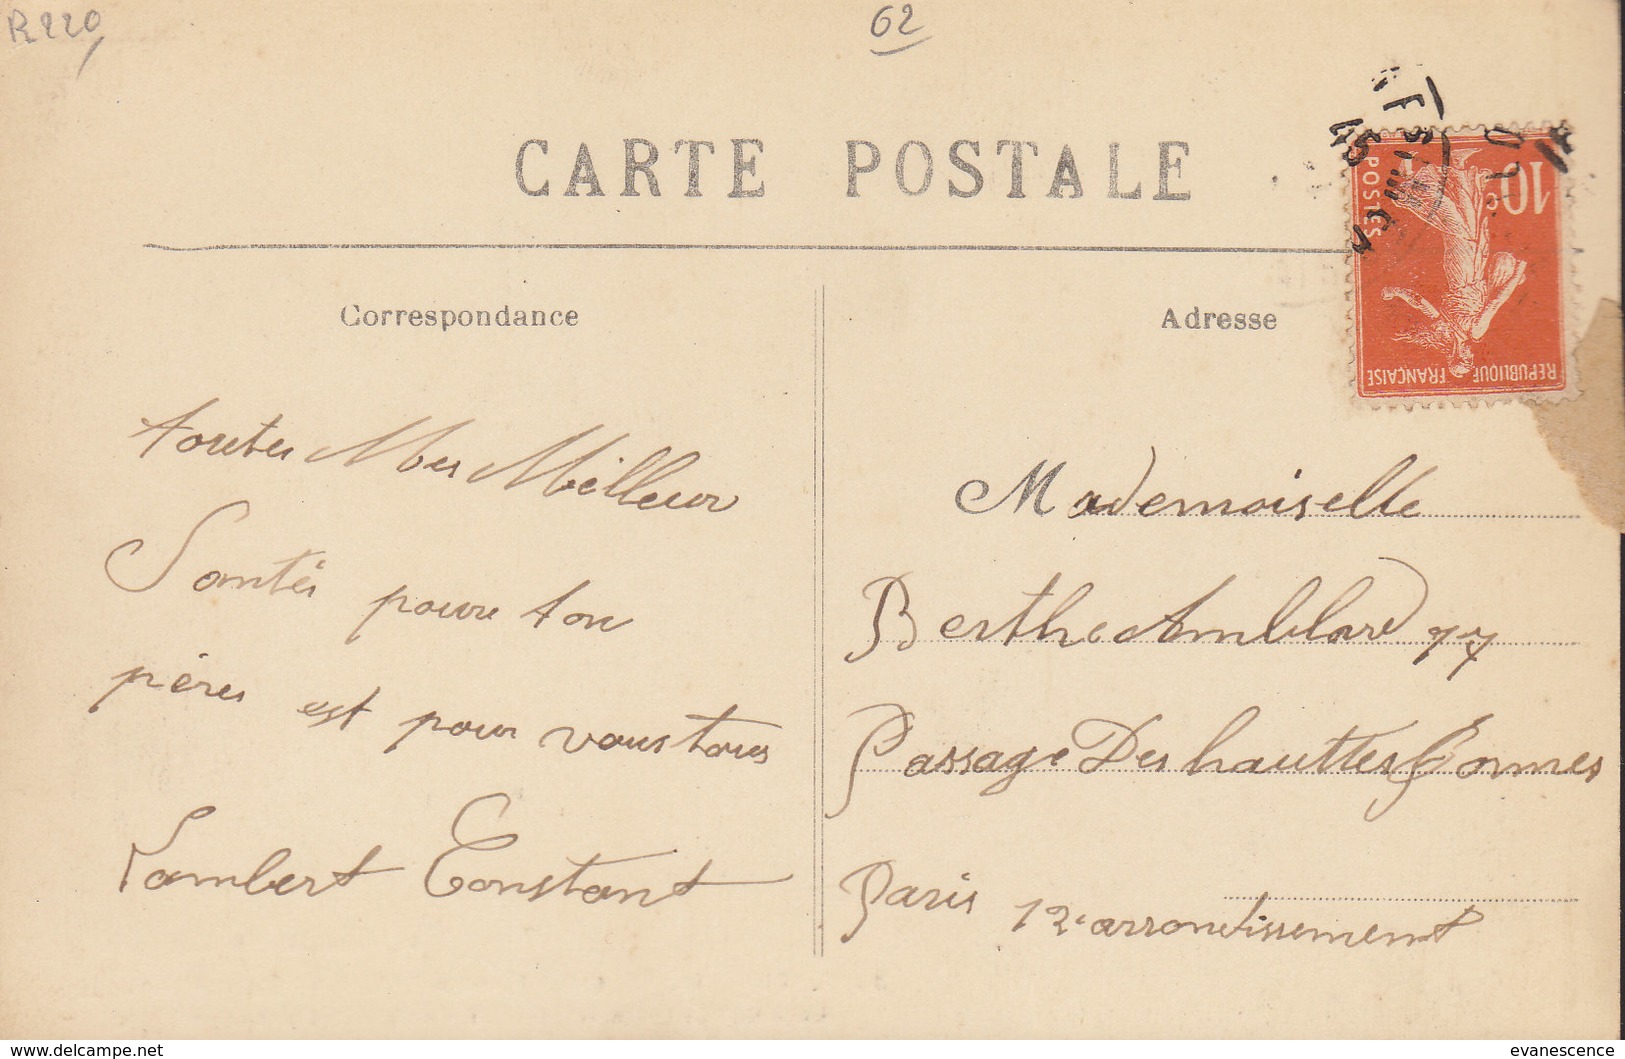 R220
62
CARTE POSTALE
Correspondance
Adresse
10 c
POSTES
REPUBLIQUE FRANÇAISE
45
toutes Mes Milleur
Santés pour ton
pères est pour vous tous
Lambert Constant
Mademoiselle
Berthe Amblard 77
Passage Des hauttes Formes
Paris 12e arrondissement
www.delcampe.net
evanescence